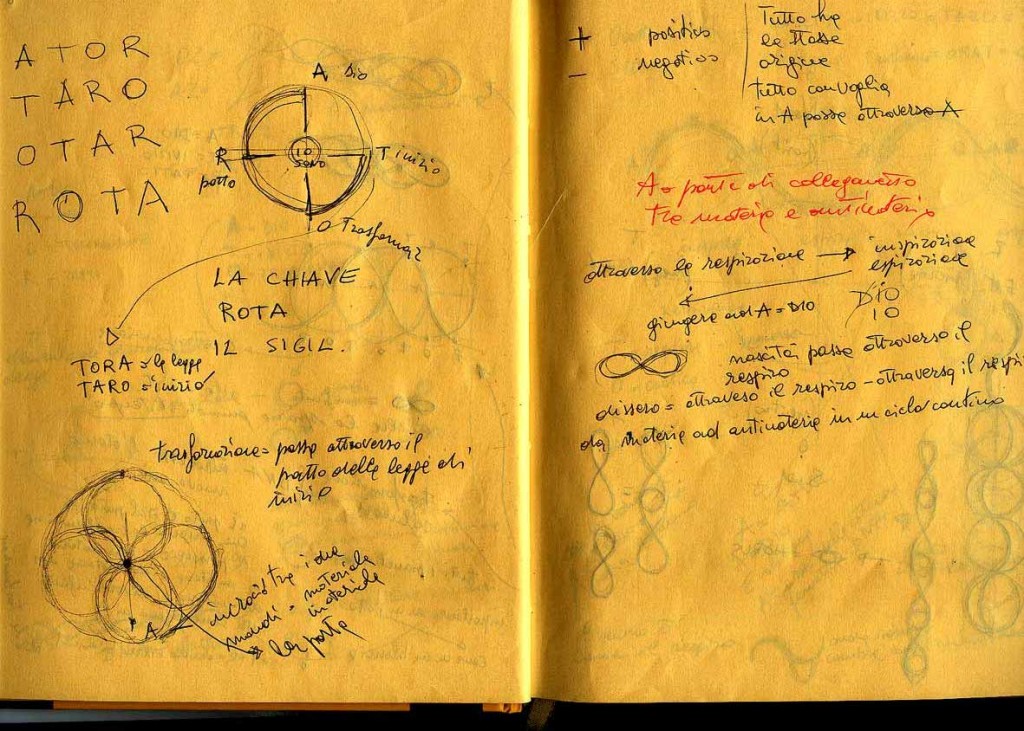 ATOR
TARO
OTAR
ROTA
A Dio
R
patto
IO
SONO
T inizio
O Trasformaz
LA CHIAVE
ROTA
IL SIGIL.
TORA = la legge
TARO = inizio
trasformazione = passa attraverso il
patto della legge di
inizio
A
incrocio tra i due
mondi = materiale
la porta
+ positivo
- negativo
Tutto ha
la stessa
origine
tutto convoglia
in A passa attraverso A
A = ponte di collegamento
tra materia e antimateria
attraverso la respirazione → inspirazione
espirazione
giungere ad A = DIO
DIO
IO
nascita passa attraverso il
respiro
dissero = attraveso il respiro - attraverso il respi
da materia ad antimateria in un ciclo continuo